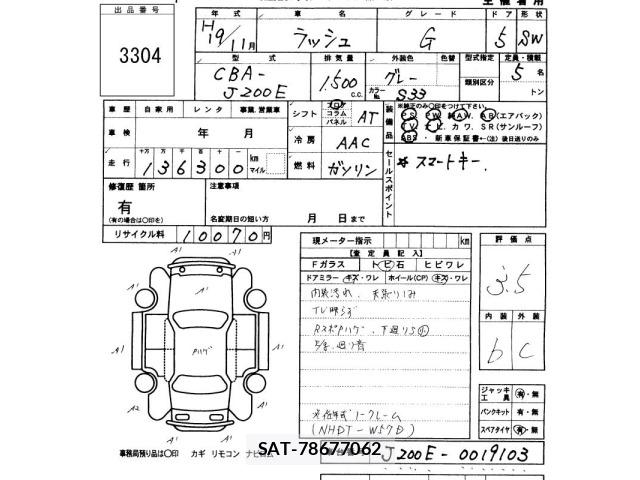 出品番号
3304
年式 車名 グレード ドア 形状
H19/11月 ラッシュ G 5 SW
型式 排気量 外装色 色替 型式指定 定員・積載
CBA-
J200E 1,500 c.c. グレー カラーNo. S33 類別区分 5名
トン
車歴 自家用 レンタ 事業,営業車 シフト フロア コラム パネル AT
車検 年 月 冷房 AAC
走行 十万 万 千 百 十 一 136300 km マイル 燃料 ガソリン
装備品 ※純正のみ○印をつけて下さい。
PS PW AW AB(エアバック)
TV ナビ カワ SR(サンルーフ)
ABS ・新車保証書←(注)後日送りのみ
セールスポイント
☆ スマートキー.
修復歴 箇所 注意事項
有
(有の場合は○印を) 名変期日の短い方 月 日まで
リサイクル料 10070円
現メーター指示 km
【査定員記入】
Fガラス トビ石 ヒビワレ
ドアミラー キズ・ワレ ホイール(CP) キズ・ワレ
内装汚れ、天張りしみ
TV映らず
評価点
3.5
内装 外装
b C
A1
A1
A1 Pハゲ A1
A2 A1
ジャッキ工具 有・無
パンクキット 有・無
スペアタイヤ 有・無
(NHDT-W57D)
事務局預り品は○印 カギ リモコン ナビロム
SAT-78677062
車台番号 J200E-0019103